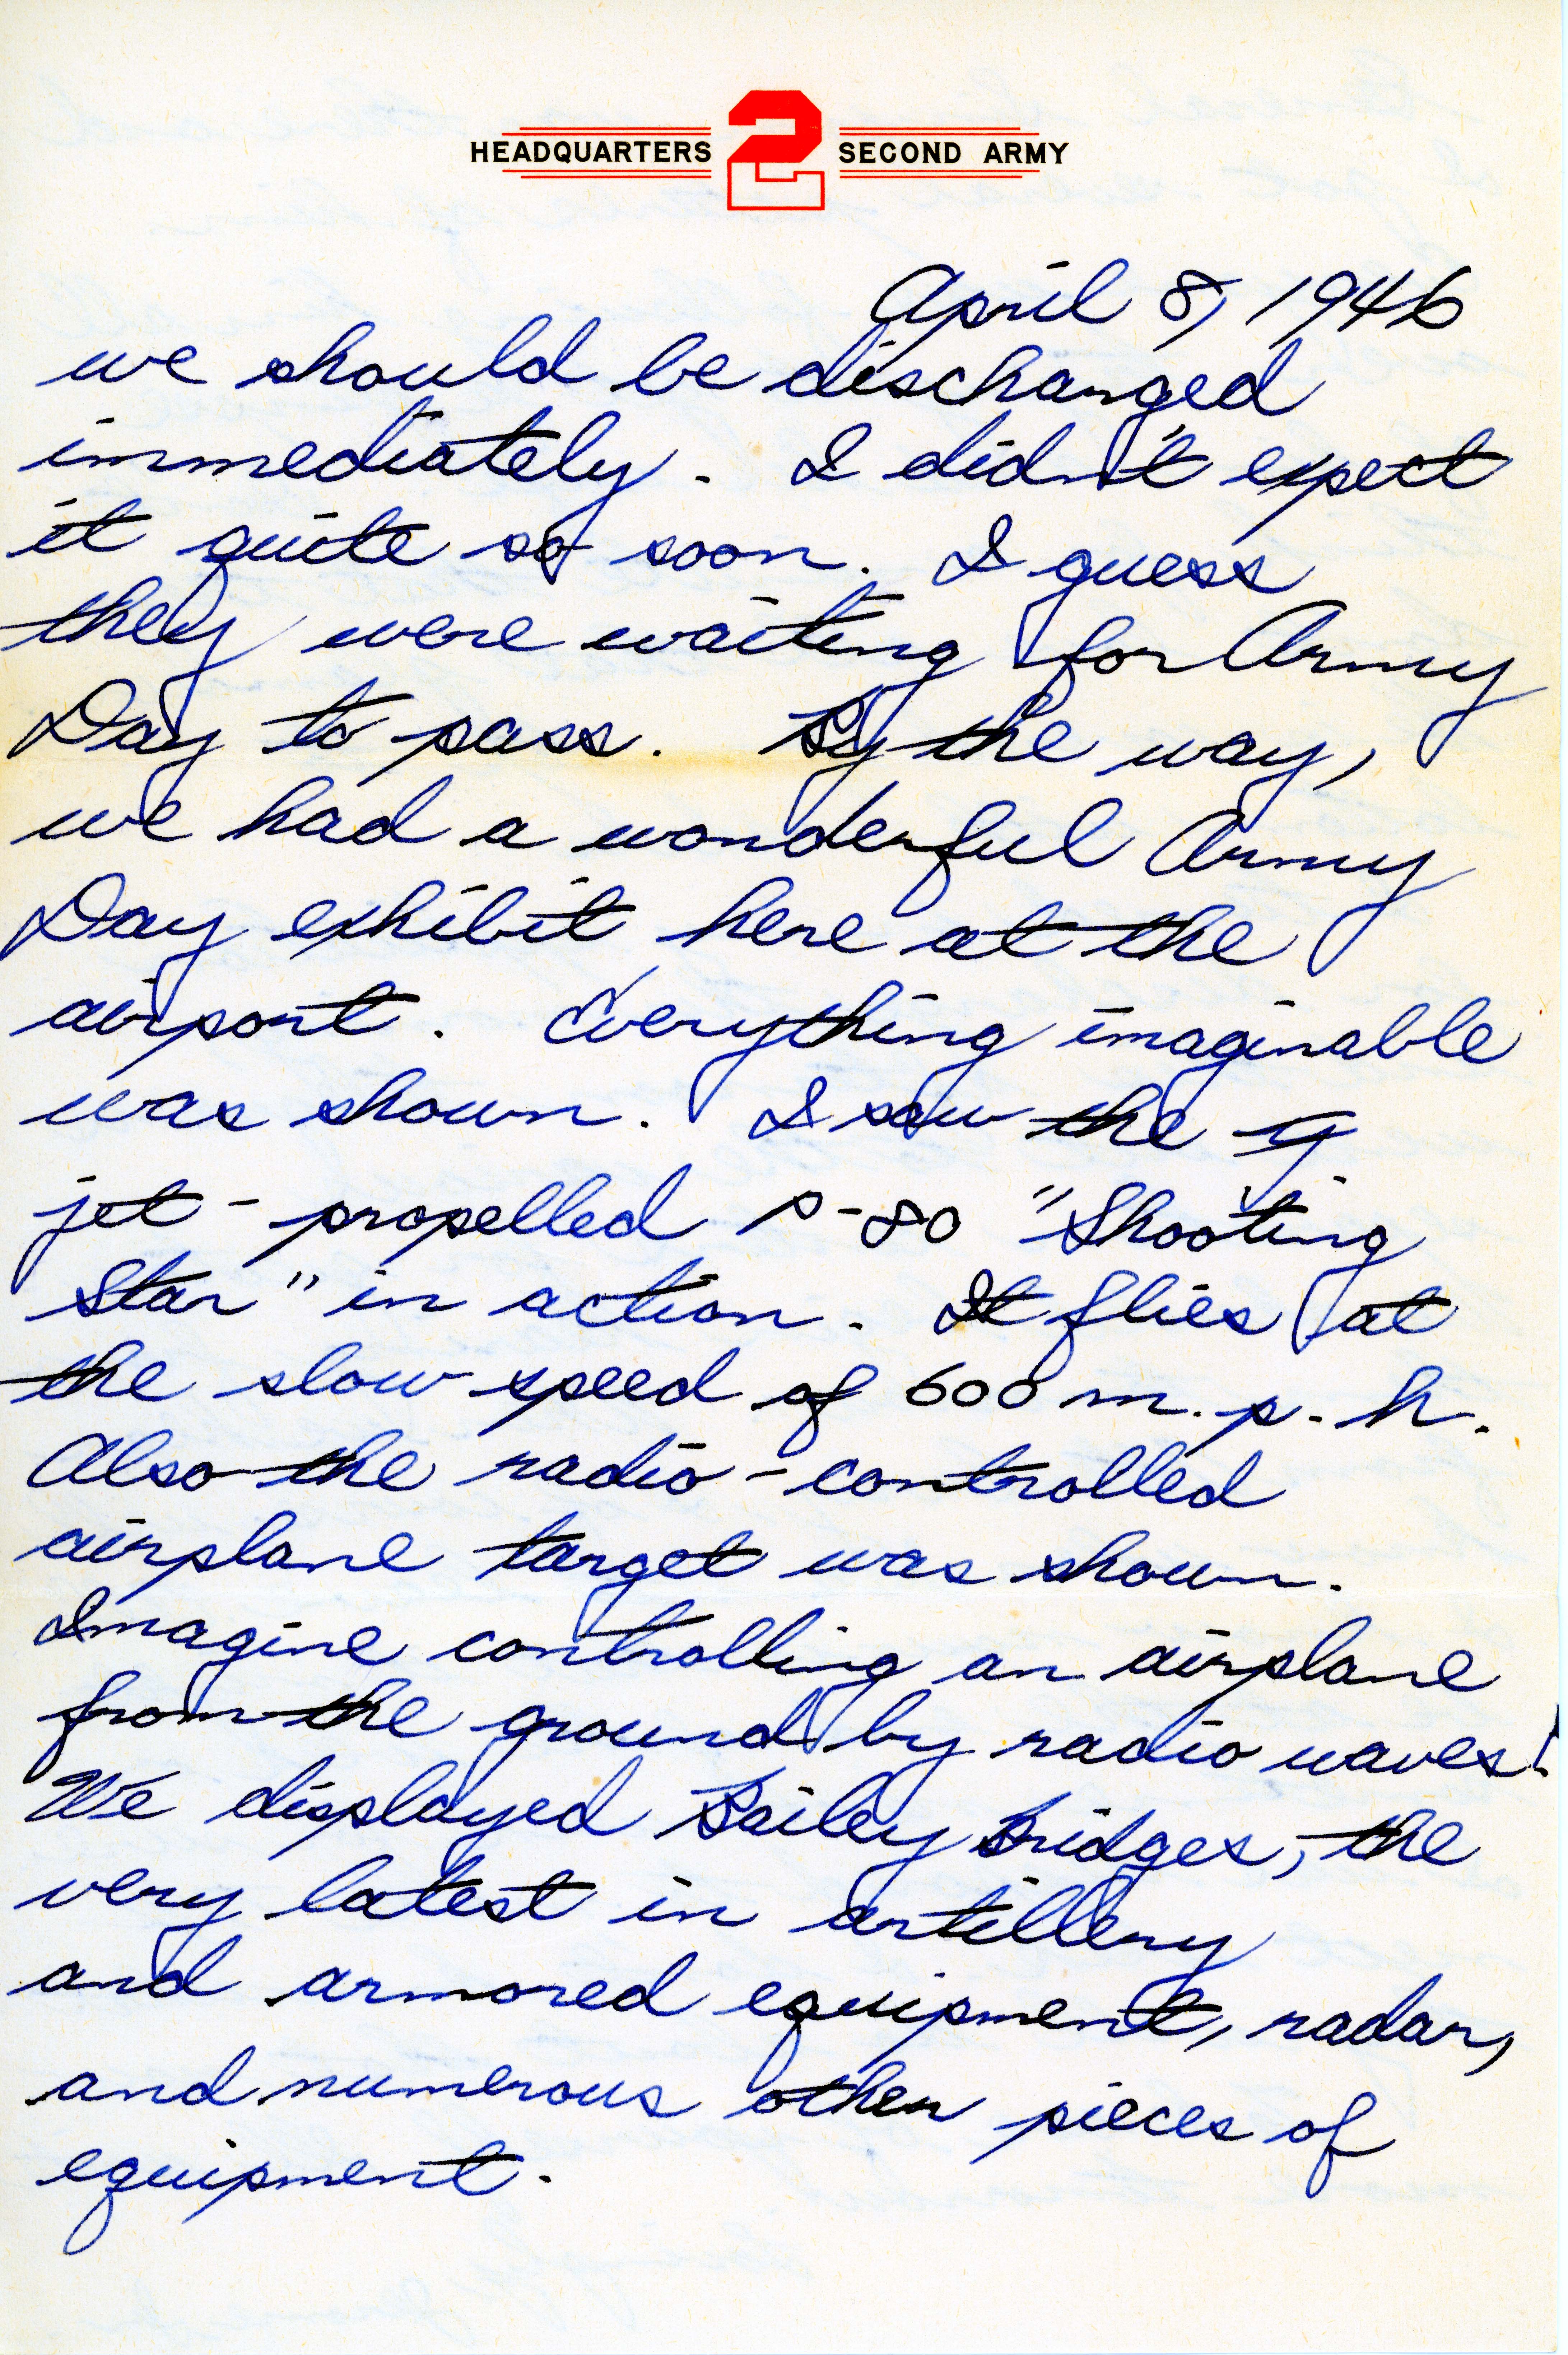 HEADQUARTERS 2 SECOND ARMY
April 8, 1946
we should be discharged
immediately. I didn't expect
it quite so soon. I guess
they were waiting for Army
Day to pass. By the way,
we had a wonderful Army
Day exhibit here at the
airport. Everything imaginable
was shown. I saw the
jet-propelled P-80 "Shooting
Star" in action. It flies at
the slow speed of 600 m.p.h.
Also the radio-controlled
airplane target was shown.
Imagine controlling an airplane
from the ground by radio waves!
We displayed Bailey Bridges, the
very latest in artillery
and armored equipment, radar,
and numerous other pieces of
equipment.